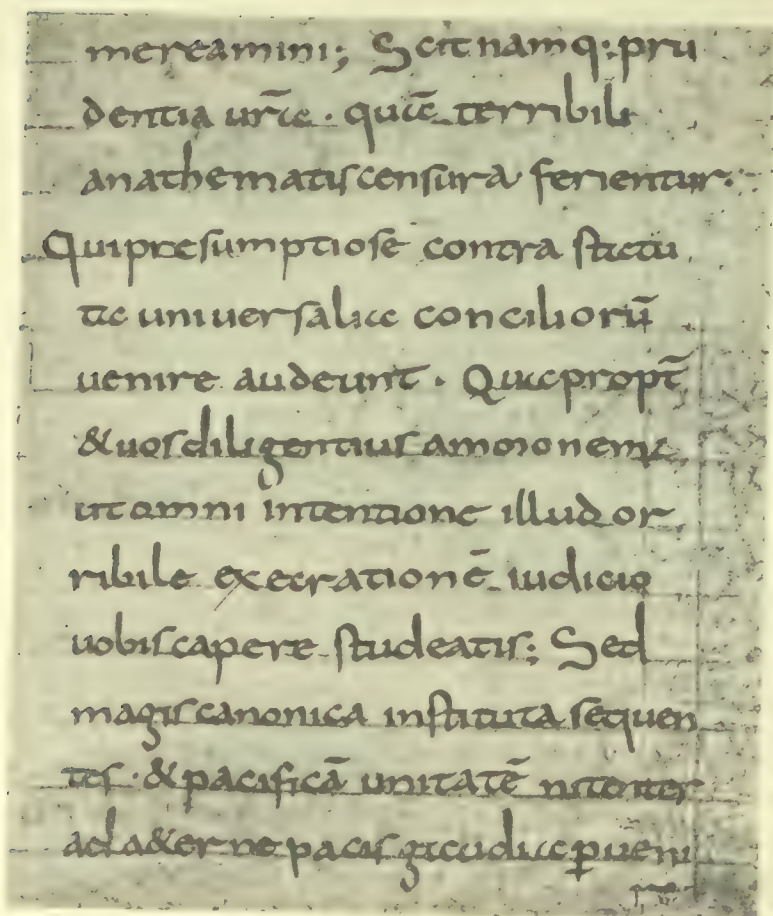 mereamini; Scit namq; pru
dentia ur̄a · quia terribili
anathematis censura ferientur·
Qui presumptiose contra statu
ta uniuersaliu conciliorū
uenire audeunt · Quapropt̄
& uos diligentius ammonem
ut omni intentione illud or
ribile execrationē iudicio
uobis capere studeatis; Sed
magis canonica instituta sequen
tes · & pacificā unitatē nitenter
ad a&erne pacis gaudia ꝑueni